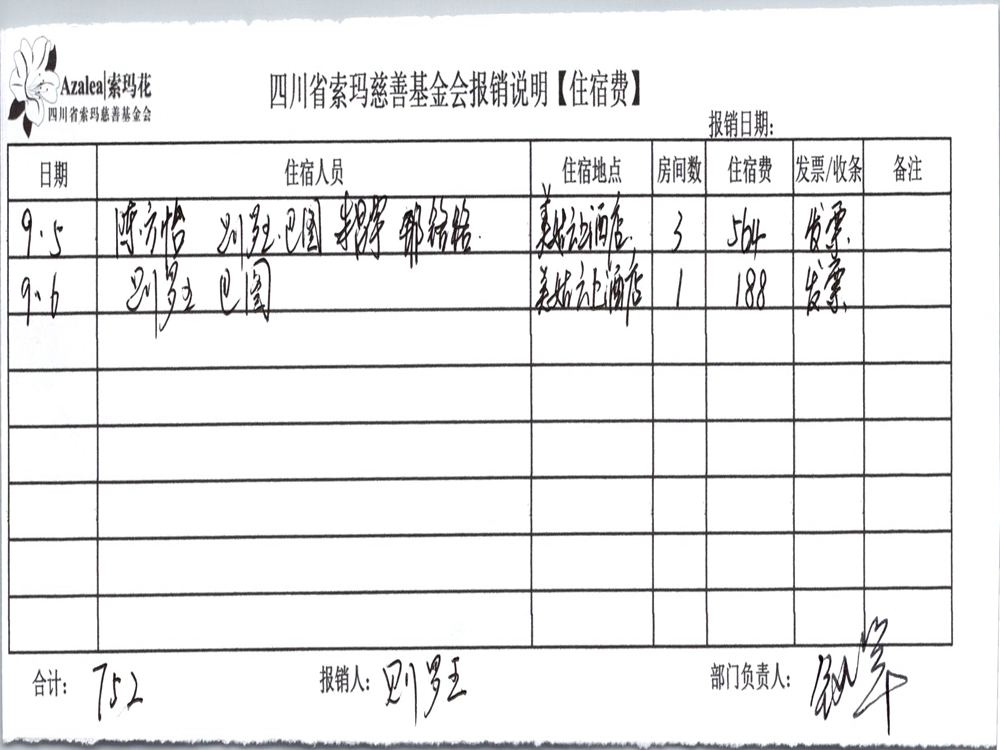 Azalea|索玛花
四川省索玛慈善基金会
四川省索玛慈善基金会报销说明【住宿费】
报销日期:
日期 住宿人员 住宿地点 房间数 住宿费 发票/收条 备注
9.5 陈方怡 则罗王 巴图 朱昌军 美姑云上酒店 3 564 发票
9.6 则罗王 巴图 美姑云上酒店 1 188 发票
合计: 752 报销人: 则罗王 部门负责人: